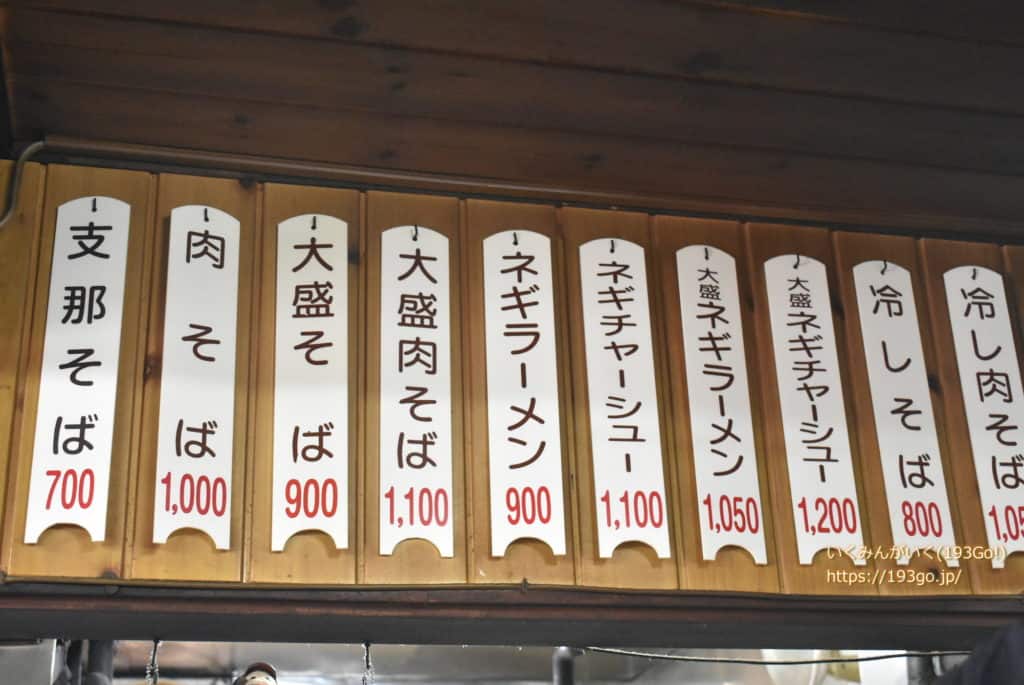 支那そば
700
肉そば
1,000
大盛そば
900
大盛肉そば
1,100
ネギラーメン
900
ネギチャーシュー
1,100
大盛ネギラーメン
1,050
大盛ネギチャーシュー
1,200
冷しそば
800
冷し肉そば
1,05
いくみんがいく(193Go!)
https://193go.jp/